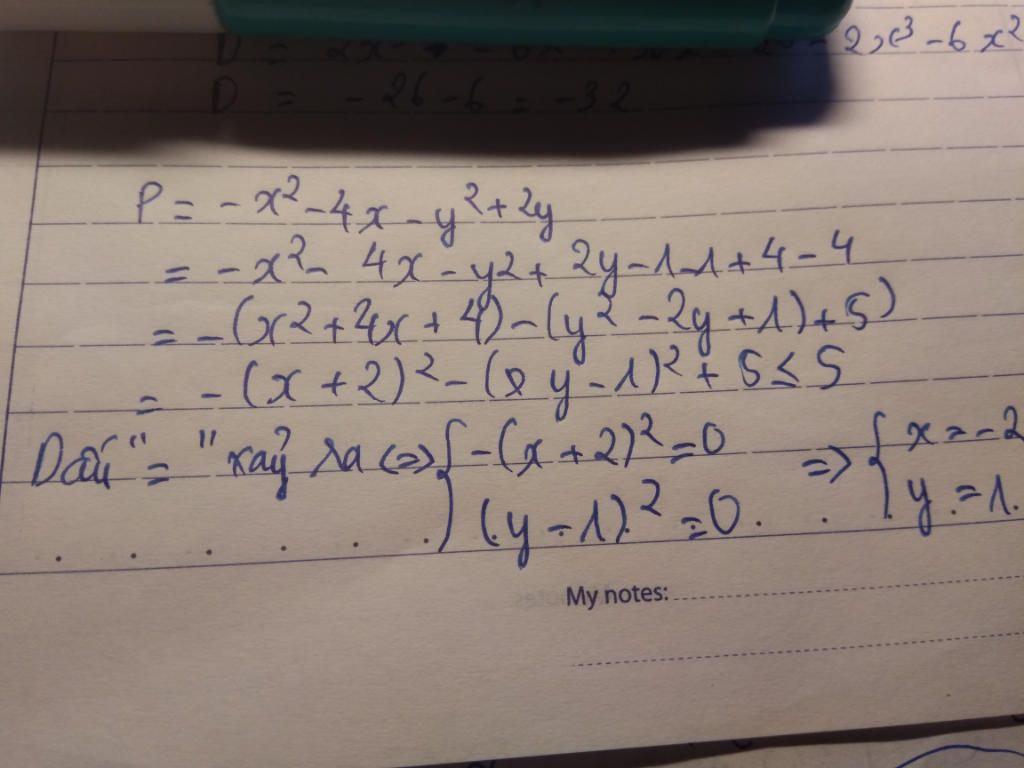 - 2x³ - 6x²
D = - 26 - 6 = - 32
P = - x² - 4x - y² + 2y
= - x² - 4x - y² + 2y - 1 - 1 + 4 - 4
= - (x² + 4x + 4) - (y² - 2y + 1) + 5)
= - (x + 2)² - (y - 1)² + 5 ≤ 5
Dấu " = " xảy ra <=> { - (x + 2)² = 0 => { x = - 2
(y - 1)² = 0 y = 1.
My notes: